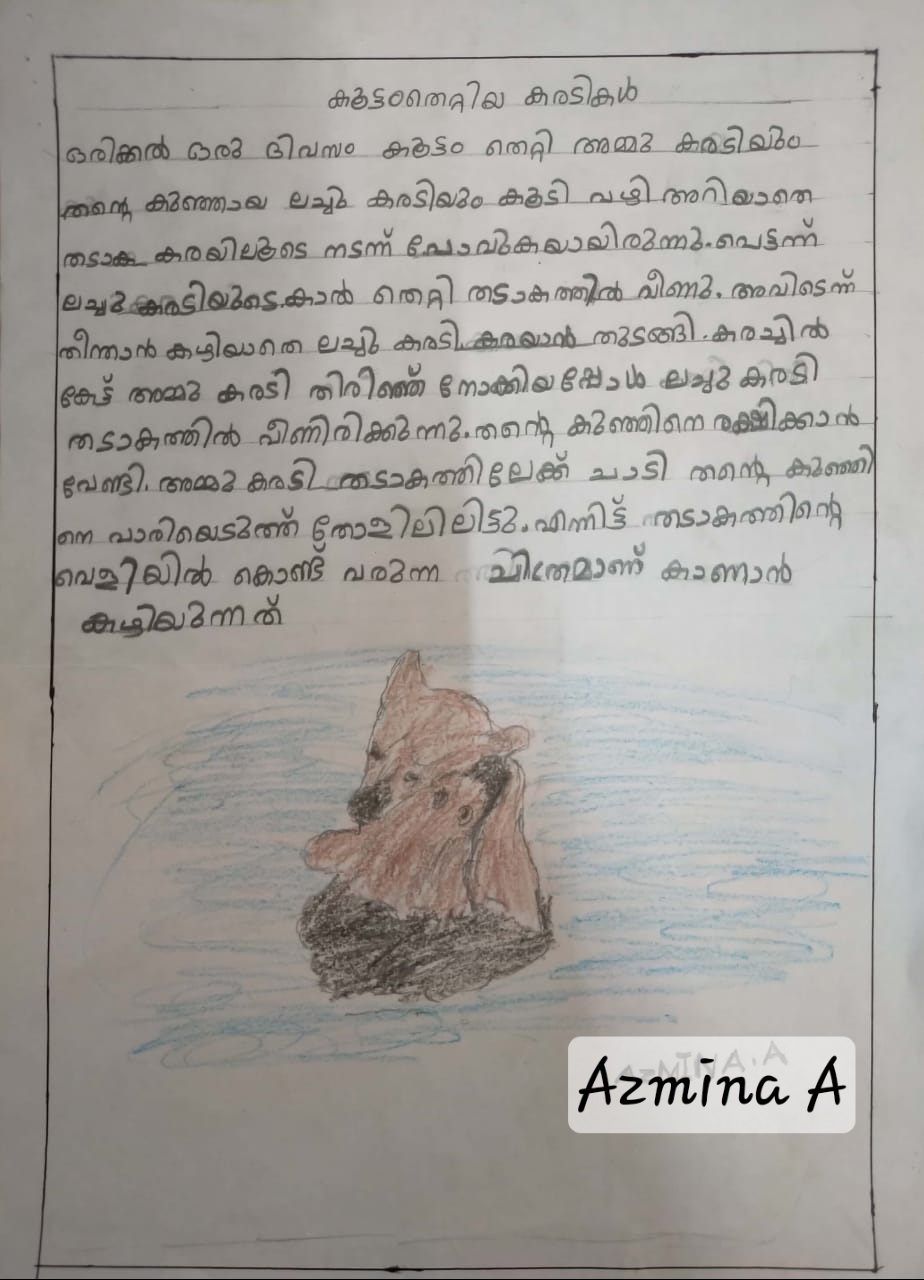 കൂട്ടംതെറ്റിയ കരടികൾ
ഒരിക്കൽ ഒരു ദിവസം കൂട്ടം തെറ്റി അമ്മു കരടിയും
തന്റെ കുഞ്ഞായ ലച്ചു കരടിയും കൂടി വഴി അറിയാതെ
തടാക കരയിലൂടെ നടന്ന് പോവുകയായിരുന്നു. പെട്ടന്ന്
ലച്ചു കരടിയുടെ.കാൽ തെറ്റി തടാകത്തിൽ വീണു. അവിടെന്ന്
നീന്താൻ കഴിയാതെ ലച്ചു കരടി കരയാൻ തുടങ്ങി. കരച്ചിൽ
കേട്ട് അമ്മു കരടി തിരിഞ്ഞ് നോക്കിയപ്പോൾ ലച്ചു കരടി
തടാകത്തിൽ വീണിരിക്കുന്നു. തന്റെ കുഞ്ഞിനെ രക്ഷിക്കാൻ
വേണ്ടി. അമ്മു കരടി തടാകത്തിലേക്ക് ചാടി തന്റെ കുഞ്ഞി
നെ വാരിയെടുത്ത് തോളിലിലിട്ടു. എന്നിട്ട് തടാകത്തിന്റെ
വെളിയിൽ കൊണ്ട് വരുന്ന ചിത്രമാണ് കാണാൻ
കഴിയുന്നത്
Azmina A